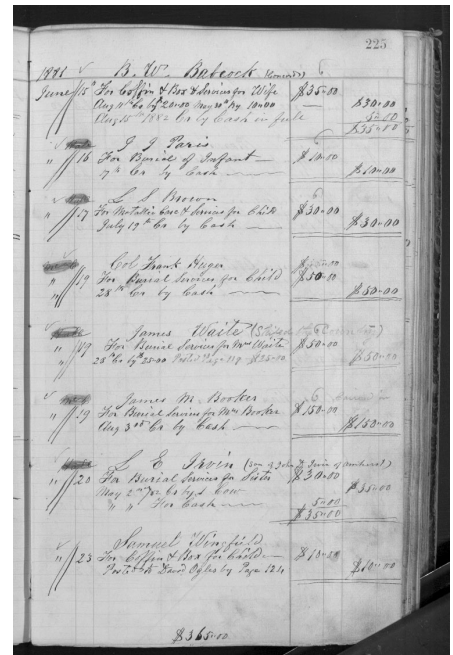 225
1881 B. W. Babcock
June 15th For Coffin & Box & Services for Wife $35.00
Aug 11th Cr by 20.00 May 20th by 10.00 $30.00
Aug 15th 1882 Cr by Cash in full 5.00
$35.00
J J Paris
" 16 For Burial of Infant $10.00
17th Cr by Cash $10.00
L S Brown
" 17 For Metallic Case & Services for Child $30.00
July 19th Cr by Cash $30.00
Col Frank Huger
" 19 For Burial Services for Child $50.00
" 28th Cr by Cash $50.00
James Waite
" 19 For Burial Services for Mrs Waite $50.00
25th Cr by 25.00 Posted Page 119 $25.00 $50.00
James M. Booker
" 19 For Burial Services for Mrs Booker $150.00
Aug 3rd Cr by Cash $150.00
L E Irvin (son of John Irvin of Amherst)
" 20 For Burial Services for Sister $30.00
May 2nd Cr by 1 Cow $35.00
" " For Cash 5.00
$35.00
Samuel Wingfield
" 23 For Coffin & Box for Child $10.00
Posted to David Ogles by Page 124 $10.00
$365.00